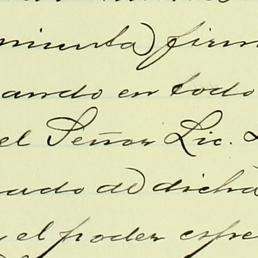 mienta) firm
ando en todo
el Señor Lic. L
ado de dicha
el poder espre